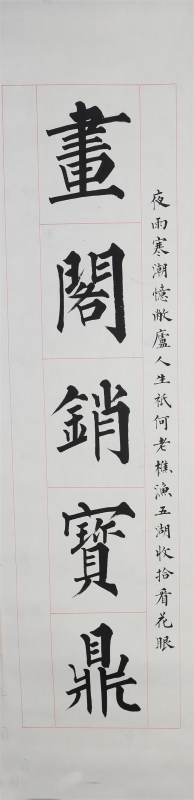 夜雨寒潮憶敝廬人生祇何老樵漁五湖收拾看花眼
畫閣銷寶鼎